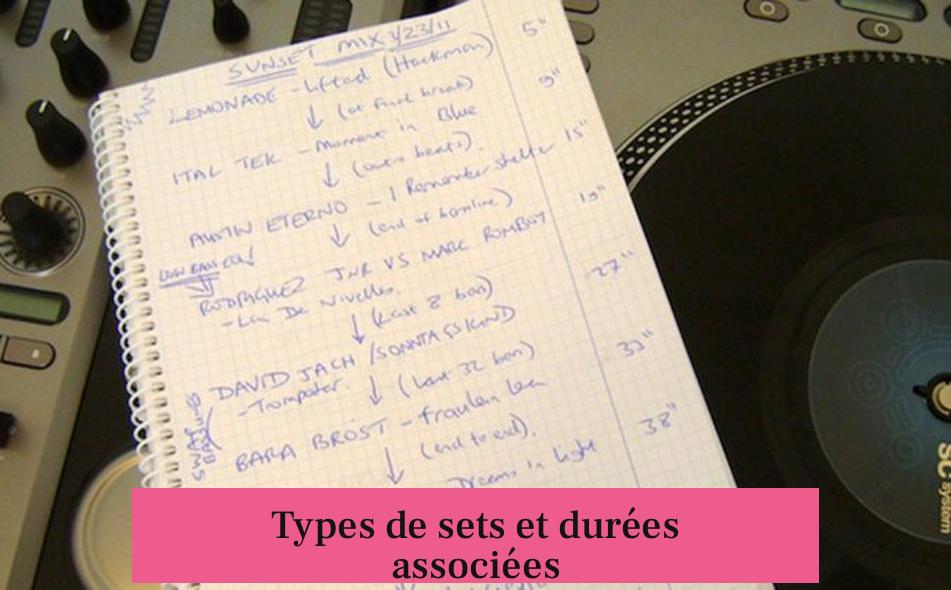 SUNSET MIX 3/23/11
LEMONADE - Lifted (Hackman) 5"
↓ (at final break) 9"
ITAL TEK - Moment in Blue
↓ (outro beats). 15"
AUSTIN ETERNO - I Remember
↓ (end of bassline) 19"
LOW BASS EQ!
RODRIGUEZ JNR VS MARC ROMBOY
- Lac De Nivelles. 27"
↓ (Last 8 bars)
DAVID JACH / SONNTAGSKIND 33"
- Trompeter.
↓ (Last 32 bars)
SWAP
BASSLINES
BARA BRÖST - Fraulein 38"
↓ (end to end).
Dreams in Light
Types de sets et durées
associées
SC system